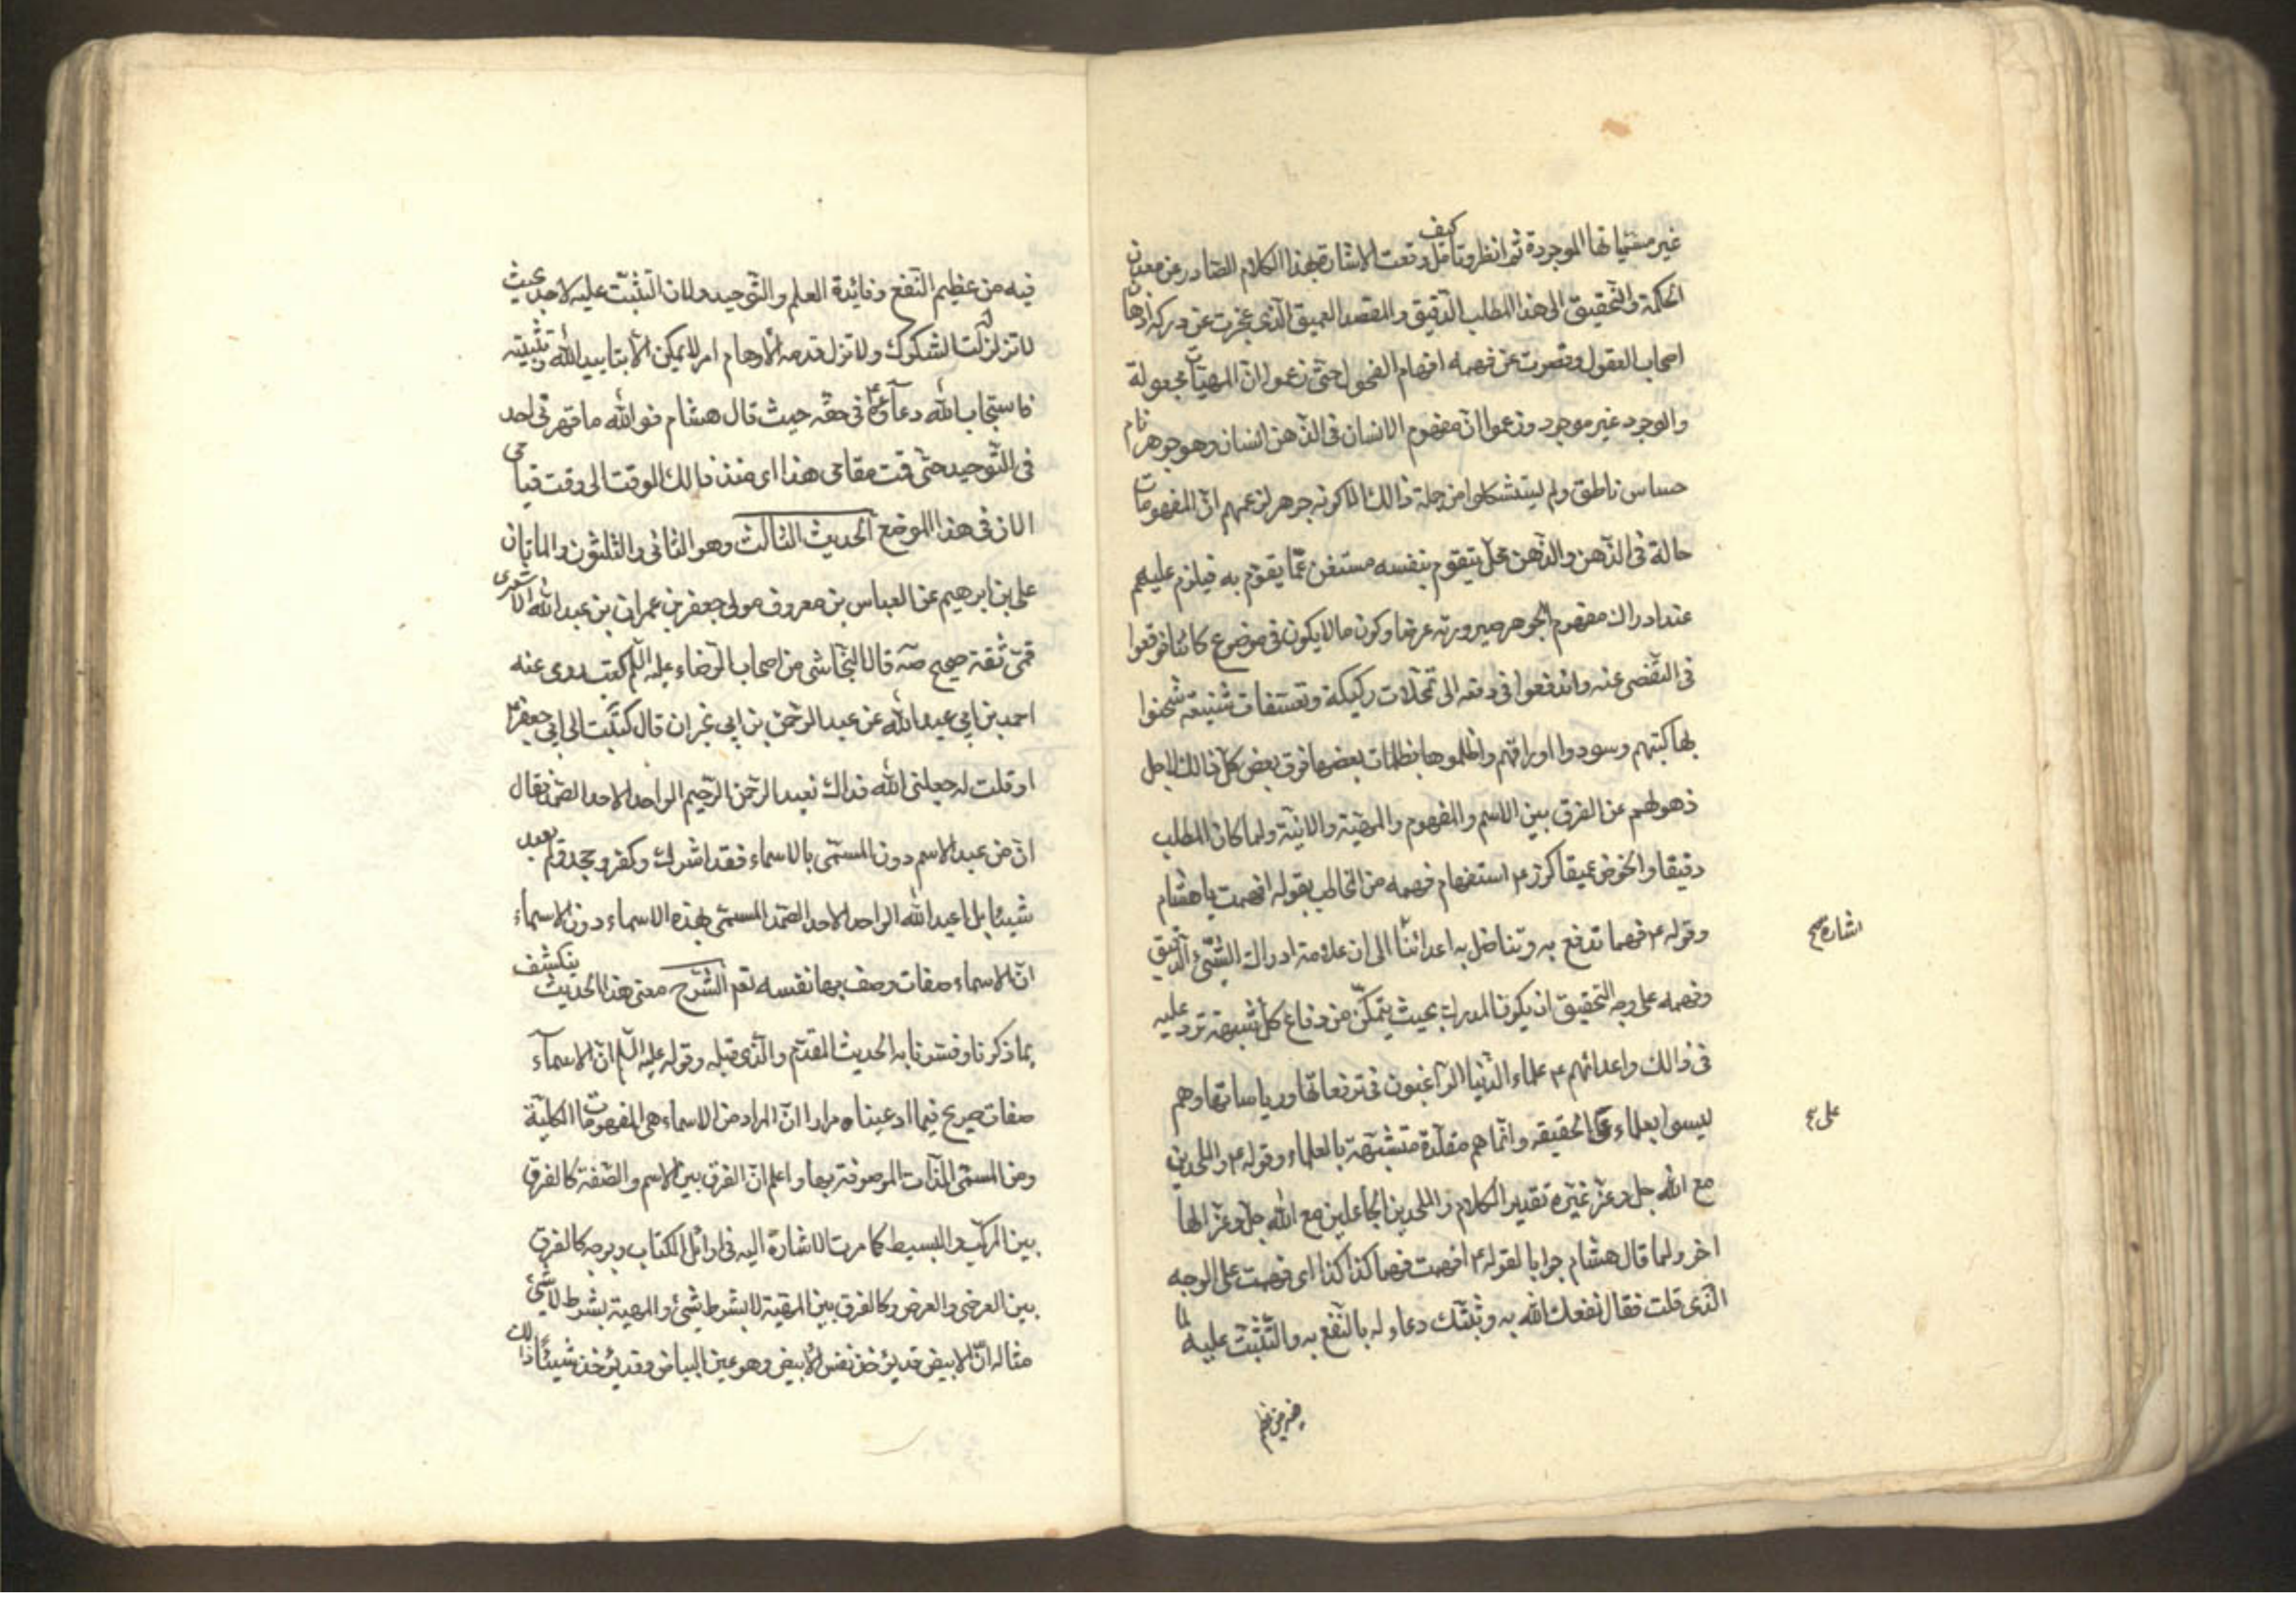 غير مسمّياتها الموجودة ثم انظر وتأمل كيف وقعت الاشارة بهذا الكلام الصادر عن معدن
الحكمة والتحقيق الى هذا المطلب الدقيق والمقصد العميق الذى عجزت عن دركه اذهان
اصحاب العقول وقصرت عن فهمه افهام الفحول حتى زعموا ان المهيّات مجعولة
والوجود غير موجود وزعموا انّ مفهوم الانسان فى الذهن انسان وهو جوهر نام
حساس ناطق ولم يستشكلوا من جملة ذالك الا كونه جوهر لزعمهم انّ المفهومات
حالة فى الذهن والذهن محلّ يتقوم بنفسه مستغن عمّا يقوم به فيلزم عليهم
عند ادراك مفهوم الجوهر صيرورته عرضا وكون ما لا يكون فى موضوع كائنا فوقعوا
فى التفصى عنه واندفعوا فى دفعه الى تمحّلات ركيكة وتعسّفات شنيعة شحنوا
بها كتبهم وسودوا اوراقهم واظلموها بظلمات بعضها فوق بعض كل ذالك لاجل
ذهولهم عن الفرق بين الاسم والمفهوم والمهية والانية ولما كان المطلب
دقيقا والخوض عميقا كرّر ع استفهام فهمه من المخاطب بقوله افهمت يا هشام
وقوله ع فهما تدفع به وتناضل به اعدائنا الى ان علامة ادراك الشئ الدقيق
اشارة صح
وفهمه على وجه التحقيق ان يكون المدرك بحيث يتمكّن من دفاع كل شبهة ترد عليه
فى ذالك واعدائهم ع علماء الدنيا الراغبون فى ترفعاتها ورياساتها وهم
ليسوا بعلماء على الحقيقه وانّما هم مقلّدة متشبّهة بالعلماء وقوله ع والملحدين
على صح
مع الله جل وعزّ غيره تقدير الكلام والملحدين الجاعلين مع الله جل وعز الها
اخر ولما قال هشام جوابا لقوله ع افهمت فهما كذا كذا اى فهمت على الوجه
الذى قلت فقال نفعك الله به وثبّتك دعاء له بالنفع به والتّثبّت عليه لما
فيه من عظيم النفع وفائدة العلم والتوحيد ولان التثبّت عليه لاحد بحيث
لا تزلزله الشكوك ولا تزل قدمه الأوهام امر لا يمكن الّا بتاييد الله وتثبيته
فاستجاب الله دعاؤه ع فى حقّه حيث قال هشام فو الله ما قهرنى احد
فى التوحيد حتى قمت مقامى هذا اى منذ ذالك الوقت الى وقت قيامى
الان فى هذا الموضع الحديث الثالث وهو الثانى والثلثون والمأتان
على بن ابرهيم عن العباس بن معروف مولى جعفر بن عمران بن عبد الله الاشعرى
قمى ثقة صحيح صه قال النجاشى من اصحاب الرضا عليه السلم روى عنه
احمد بن ابى عبد الله عن عبد الرحمن بن ابى نجران قال كتبت الى ابى جعفر ع
او قلت له جعلنى الله فداك نعبد الرحمن الرحيم الواحد الاحد الصمد فقال
انّ من عبد الاسم دون المسمّى بالاسماء فقد اشرك وكفر وجحد ولم يعبد
شيئا بل اعبد الله الواحد الاحد الصمد المسمّى بهذه الاسماء دون الاسماء
انّ الاسماء صفات وصف بها نفسه تع الشرح معنى هذا الحديث ينكشف
بما ذكرنا وفسّرنا به الحديث المقدّم والذى قبله وقوله عليه السلم انّ الاسمآء
صفات صريح فيما ادعيناه مرارا انّ المراد من الاسماء هى المفهومات الكلية
ومن المسمّى الذات الموصوفة بها واعلم انّ الفرق بين الاسم والصفة كالفرق
بين المركّب والبسيط كما مرت الاشارة اليه فى اوائل الكتاب وبوجه كالفرق
بين العرضى والعرض وكالفرق بين المهية لا بشرط شئ والمهية بشرط لا شئ
مثاله انّ الابيض قد يؤخذ نفس الابيض وهو عين البياض وقد يؤخذ شيئا ذالك